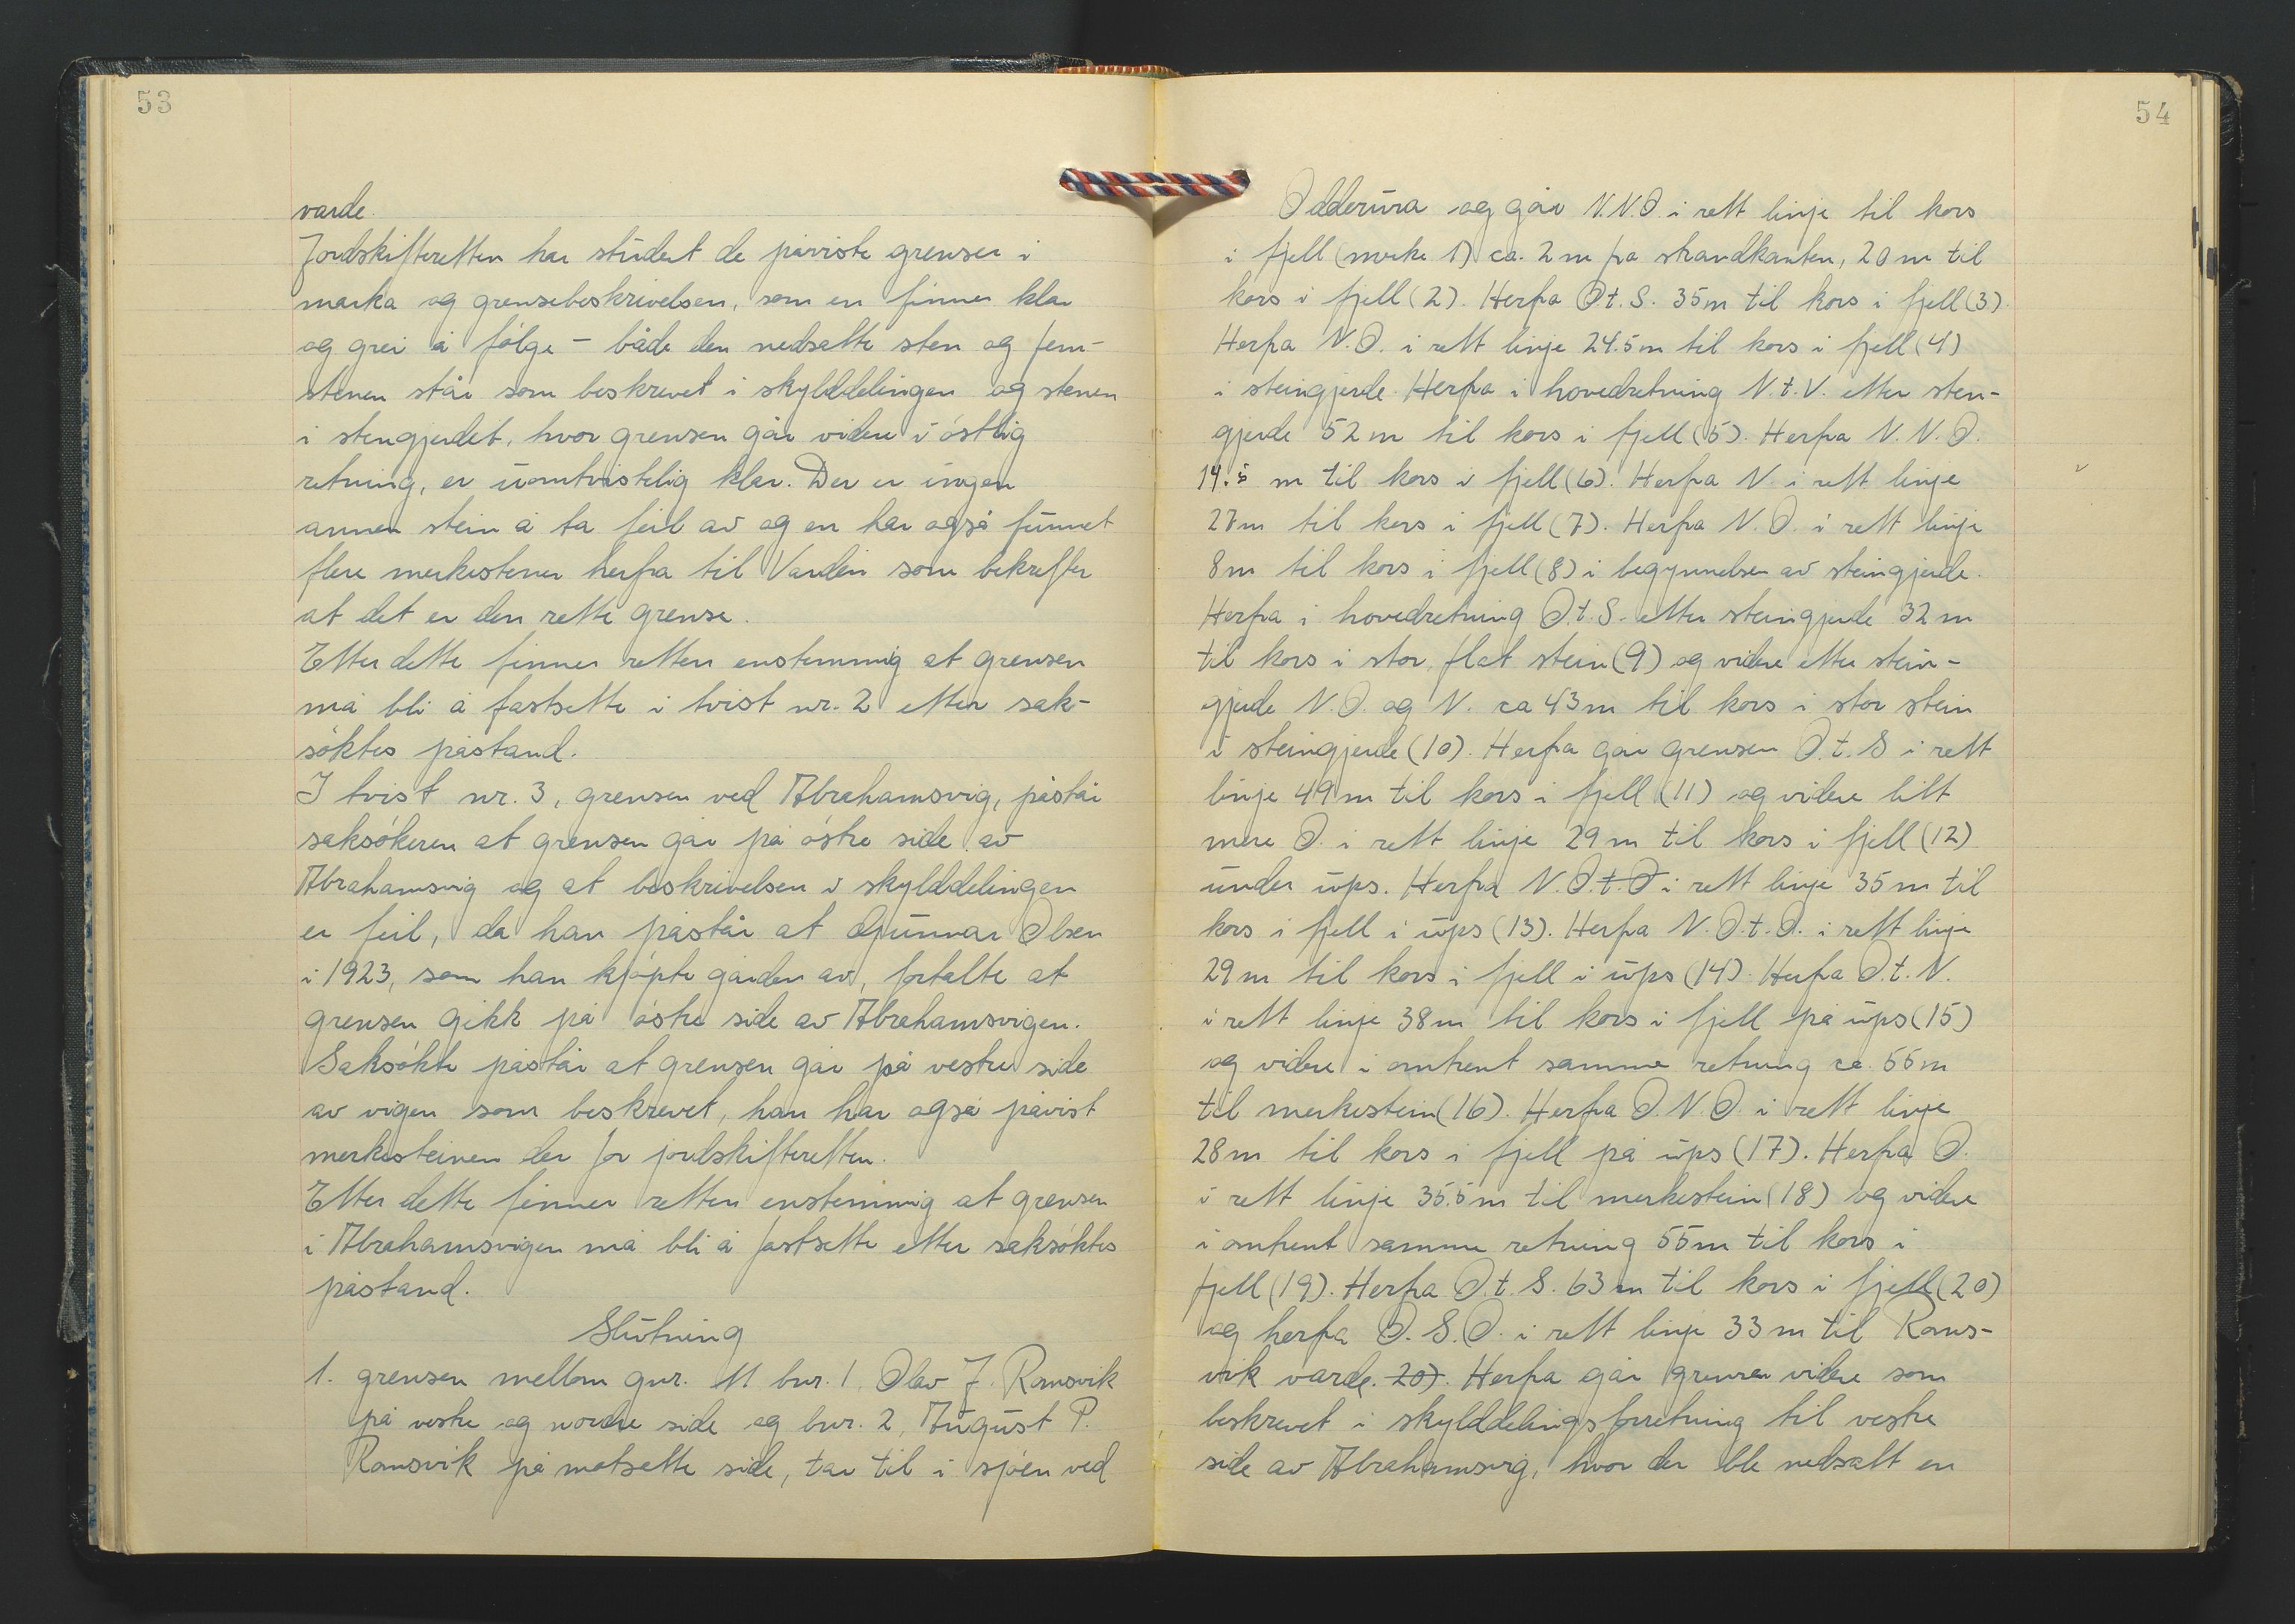 53
varde.
Jordskifteretten har studert de påviste grenser i
marka og grensebeskrivelsen, som en finner klar
og grei å følge – både den nedsatte sten og jem-
stenen står som beskrevet i skylddelingen og stenen
i stengjerdet, hvor grensen går videre i östlig
retning, er uomtvistelig klar. Der er ingen
annen stein å ta feil av og en har også funnet
flere merkestener herfra til Varden som bekrefter
at det er den rette grense.
Etter dette finner retten enstemmig at grensen
må bli å fastsette i tvist nr. 2 etter sak-
söktes påstand.
I tvist nr. 3, grensen ved Abrahamsvig, påstår
saksökeren at grensen går på östre side av
Abrahamsvig og at beskrivelsen i skylddelingen
er feil, da han påstår at Gunnar Olsen
i 1923, som han kjöpte gården av, fortalte at
grensen gikk på östre side av Abrahamsvigen.
Saksökte påstår at grensen går på vestre side
av vigen som beskrevet, han har også påvist
merkesteinen der for jordskifteretten.
Etter dette finner retten enstemmig at grensen
i Abrahamsvigen må bli å fastsette etter saksöktes
påstand.
Slutning
1. grensen mellom gnr. 11 bnr. 1, Olav J. Ramsvik
på vestre og nordre side og bnr. 2, August P.
Ramsvik på motsatte side, tar til i sjöen ved
54
Odderura og går N.N.Ø. i rett linje til kors
i fjell (merke 1) ca. 2 m fra strandkanten, 20 m til
kors i fjell (2). Herfra Ø.t.S. 35 m til kors i fjell (3).
Herfra N.Ø. i rett linje 24.5 m til kors i fjell (4)
i steingjerde. Herfra i hovedretning N.t.V. etter sten-
gjerde 52 m til kors i fjell (5). Herfra N.N.Ø.
14.5 m til kors i fjell (6). Herfra N. i rett linje
27 m til kors i fjell (7). Herfra N.Ø. i rett linje
8 m til kors i fjell (8) i begynnelsen av steingjerde.
Herfra i hovedretning Ø.t.S. etter steingjerde 32 m
til kors i stor flat stein (9) og videre etter stein-
gjerde N.Ø. og N. ca 43 m til kors i stor stein
i steingjerde (10). Herfra går grensen Ø.t.S i rett
linje 49 m til kors i fjell (11) og videre litt
mere Ø. i rett linje 29 m til kors i fjell (12)
under ups. Herfra N.Ø.t.Ø i rett linje 35 m til
kors i fjell i ups (13). Herfra N.Ø.t.Ø. i rett linje
29 m til kors i fjell i ups (14). Herfra Ø.t.N.
i rett linje 38 m til kors i fjell på ups (15)
og videre i omtrent samme retning ca. 55 m
til merkestein (16). Herfra Ø.N.Ø. i rett linje
28 m til kors i fjell på ups (17). Herfra Ø.
i rett linje 35.5 m til merkestein (18) og videre
i omtrent samme retning 55 m til kors i
fjell (19). Herfra Ø.t.S. 63 m til kors i fjell (20)
og herfra Ø.S.Ø. i rett linje 33 m til Rams-
vik varde. 20). Herfra går grensen videre som
beskrevet i skylddelingsforretning til vestre
side av Abrahamsvig, hvor der ble nedsatt en